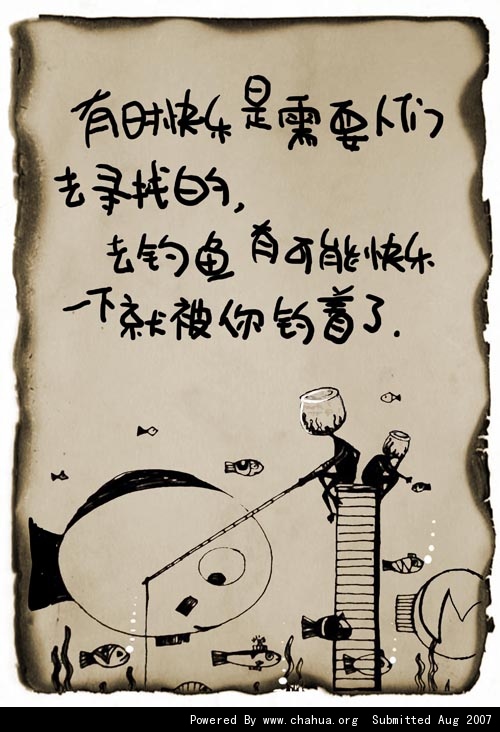 有时快乐是需要人们
去寻找的,
去钓鱼有可能快乐
一下就被你钓着了.
Powered By www.chahua.org Submitted Aug 2007